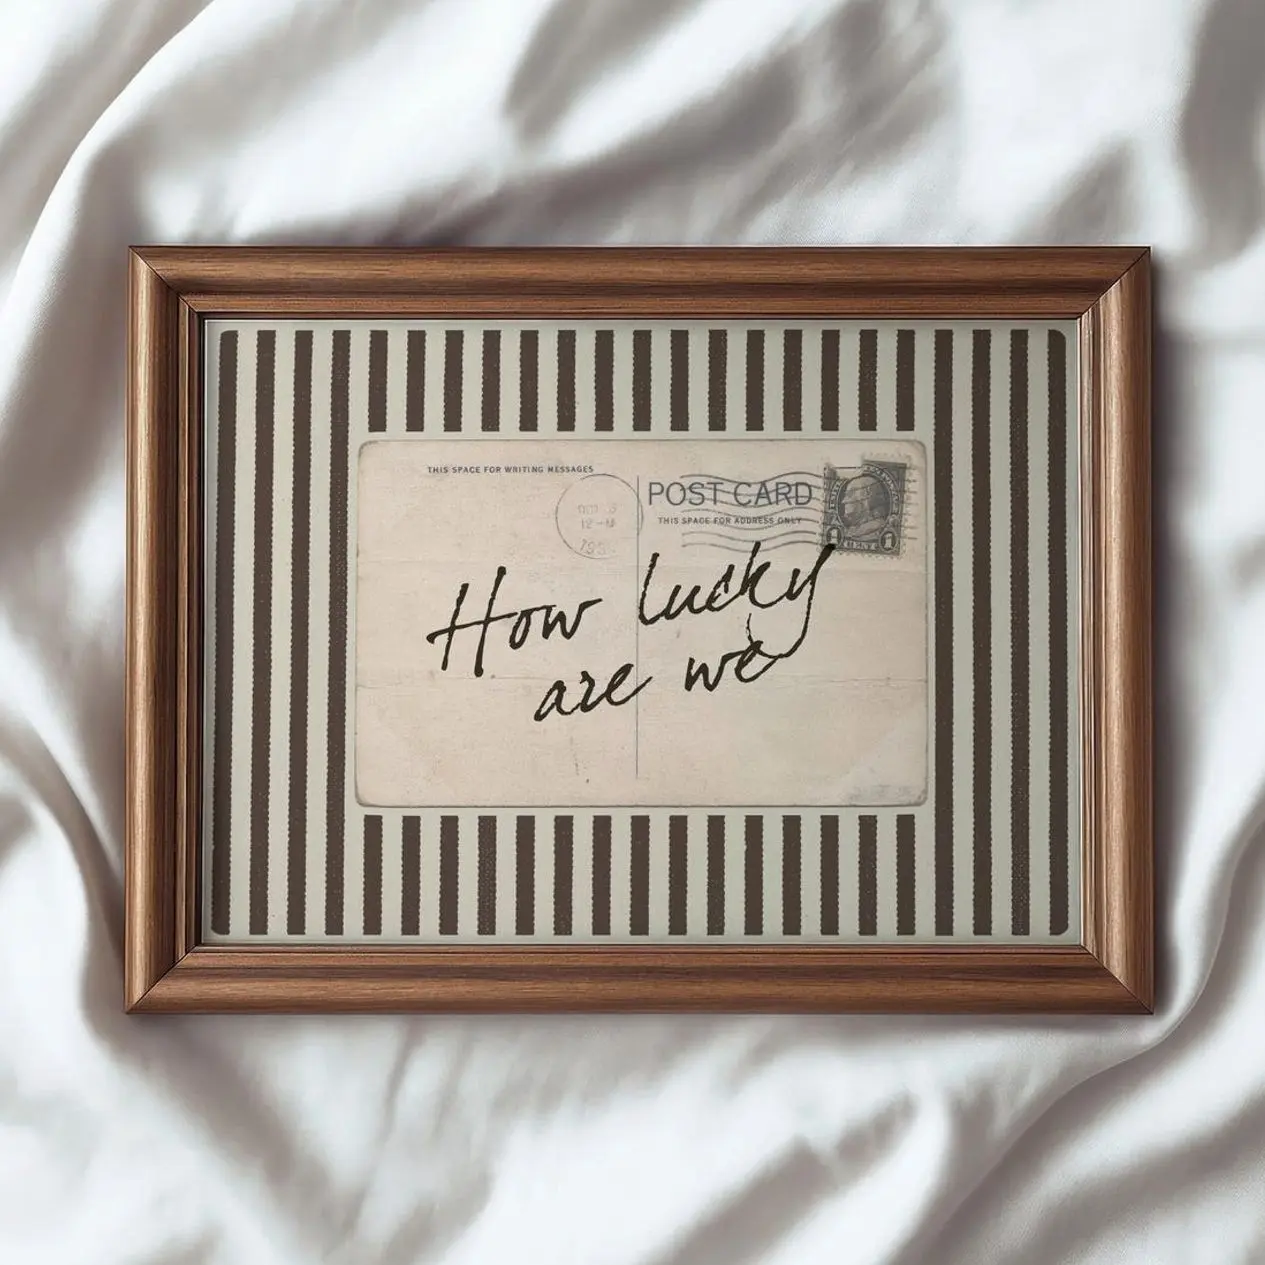 THIS SPACE FOR WRITING MESSAGES
POST CARD
THIS SPACE FOR ADDRESS ONLY
12-M
195
1 1
How lucky
are we